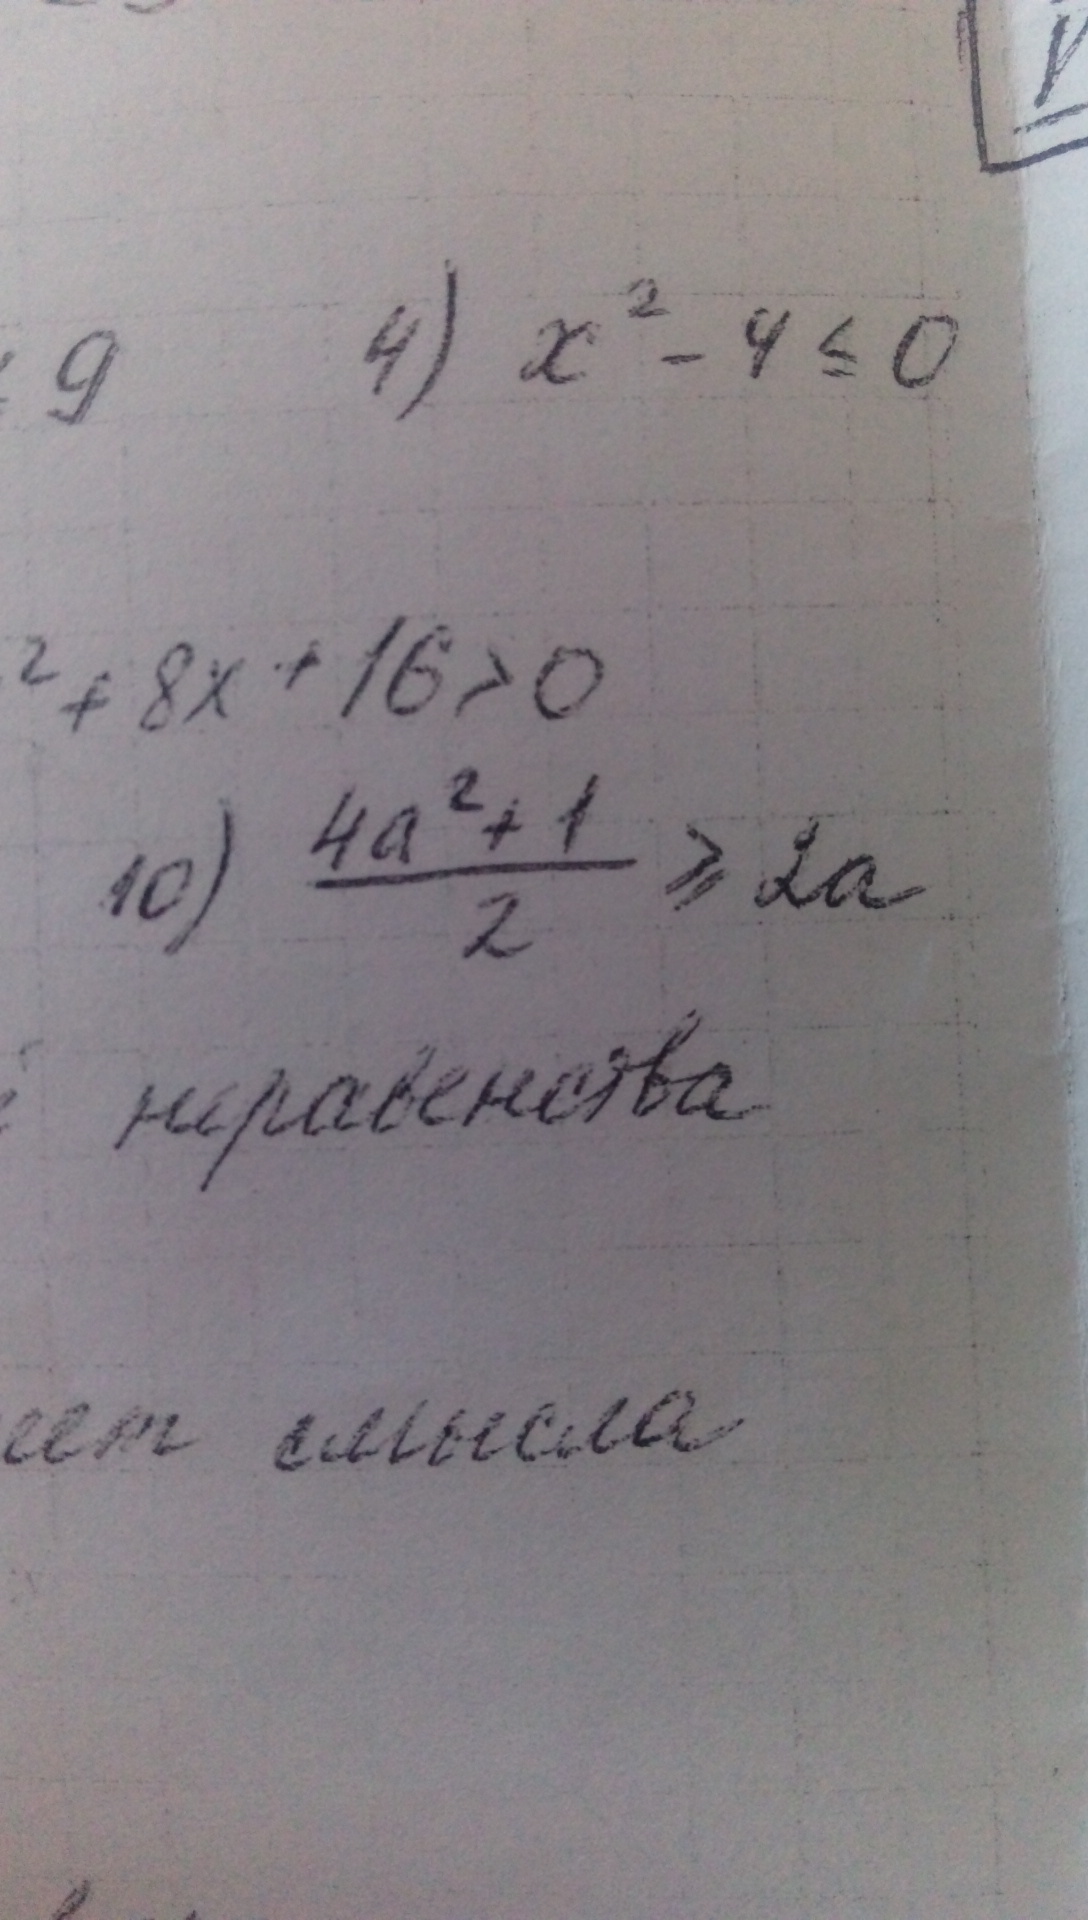 9 4) x² - 4 ≤ 0
² + 8x + 16 > 0
10) (4a² + 1)/2 ≥ 2a
неравенства
смысла